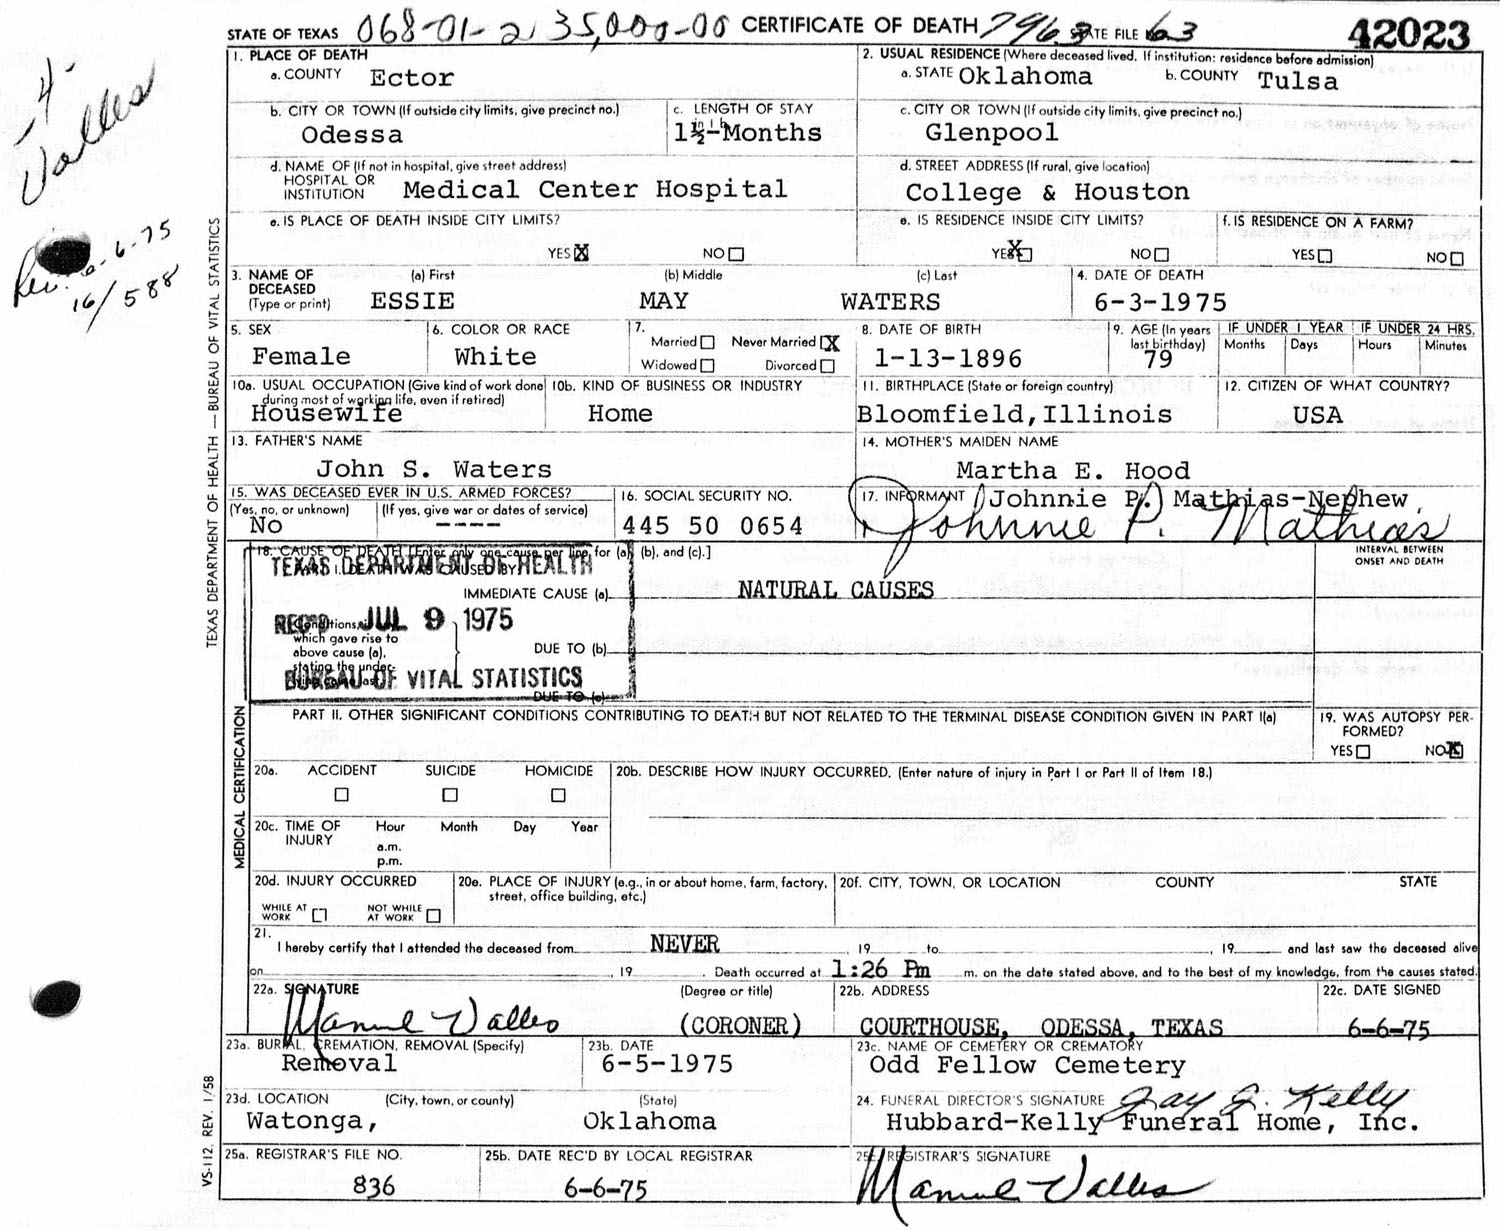 STATE OF TEXAS 068-01-2 35,000-00 CERTIFICATE OF DEATH 7963 STATE FILE 63 42023
1. PLACE OF DEATH
a. COUNTY Ector
2. USUAL RESIDENCE (Where deceased lived. If institution: residence before admission)
a. STATE Oklahoma b. COUNTY Tulsa
b. CITY OR TOWN (If outside city limits, give precinct no.)
Odessa
c. LENGTH OF STAY
1½ Months
c. CITY OR TOWN (If outside city limits, give precinct no.)
Glenpool
d. NAME OF (If not in hospital, give street address)
HOSPITAL OR
INSTITUTION Medical Center Hospital
d. STREET ADDRESS (If rural, give location)
College & Houston
e. IS PLACE OF DEATH INSIDE CITY LIMITS?
YES X NO
e. IS RESIDENCE INSIDE CITY LIMITS?
YES X NO
f. IS RESIDENCE ON A FARM?
YES NO
3. NAME OF DECEASED (Type or print)
(a) First (b) Middle (c) Last
ESSIE MAY WATERS
4. DATE OF DEATH
6-3-1975
5. SEX
Female
6. COLOR OR RACE
White
7.
Married Never Married X
Widowed Divorced
8. DATE OF BIRTH
1-13-1896
9. AGE (In years
last birthday)
79
IF UNDER 1 YEAR IF UNDER 24 HRS.
Months Days Hours Minutes
10a. USUAL OCCUPATION (Give kind of work done
during most of working life, even if retired)
Housewife
10b. KIND OF BUSINESS OR INDUSTRY
Home
11. BIRTHPLACE (State or foreign country)
Bloomfield, Illinois
12. CITIZEN OF WHAT COUNTRY?
USA
13. FATHER'S NAME
John S. Waters
14. MOTHER'S MAIDEN NAME
Martha E. Hood
15. WAS DECEASED EVER IN U.S. ARMED FORCES?
(Yes, no, or unknown) (If yes, give war or dates of service)
No ----
16. SOCIAL SECURITY NO.
445 50 0654
17. INFORMANT Johnnie P. Mathias-Nephew
Johnnie P. Mathias
18. CAUSE OF DEATH [Enter only one cause per line for (a), (b), and (c).]
PART I. DEATH WAS CAUSED BY:
IMMEDIATE CAUSE (a) NATURAL CAUSES
INTERVAL BETWEEN
ONSET AND DEATH
Conditions,
which gave rise to
above cause (a),
stating the under-
lying cause last
DUE TO (b)
DUE TO (c)
TEXAS DEPARTMENT OF HEALTH
REC'D JUL 9 1975
BUREAU OF VITAL STATISTICS
PART II. OTHER SIGNIFICANT CONDITIONS CONTRIBUTING TO DEATH BUT NOT RELATED TO THE TERMINAL DISEASE CONDITION GIVEN IN PART I(a)
19. WAS AUTOPSY PER-
FORMED?
YES NO X
20a. ACCIDENT SUICIDE HOMICIDE
20b. DESCRIBE HOW INJURY OCCURRED. (Enter nature of injury in Part I or Part II of Item 18.)
20c. TIME OF
INJURY
Hour Month Day Year
a.m.
p.m.
20d. INJURY OCCURRED
WHILE AT
WORK
NOT WHILE
AT WORK
20e. PLACE OF INJURY (e.g., in or about home, farm, factory,
street, office building, etc.)
20f. CITY, TOWN, OR LOCATION COUNTY STATE
21.
I hereby certify that I attended the deceased from NEVER, 19 to , 19 and last saw the deceased alive
on , 19 . Death occurred at 1:26 Pm m. on the date stated above, and to the best of my knowledge, from the causes stated.
22a. SIGNATURE (Degree or title)
Manuel Valles (CORONER)
22b. ADDRESS
COURTHOUSE, ODESSA, TEXAS
22c. DATE SIGNED
6-6-75
23a. BURIAL, CREMATION, REMOVAL (Specify)
Removal
23b. DATE
6-5-1975
23c. NAME OF CEMETERY OR CREMATORY
Odd Fellow Cemetery
23d. LOCATION (City, town, or county) (State)
Watonga, Oklahoma
24. FUNERAL DIRECTOR'S SIGNATURE Jay G. Kelly
Hubbard-Kelly Funeral Home, Inc.
25a. REGISTRAR'S FILE NO.
836
25b. DATE REC'D BY LOCAL REGISTRAR
6-6-75
25c. REGISTRAR'S SIGNATURE
Manuel Valles
TEXAS DEPARTMENT OF HEALTH — BUREAU OF VITAL STATISTICS
MEDICAL CERTIFICATION
VS-112, REV. 1/58
4
Valles
6-6-75
16/588